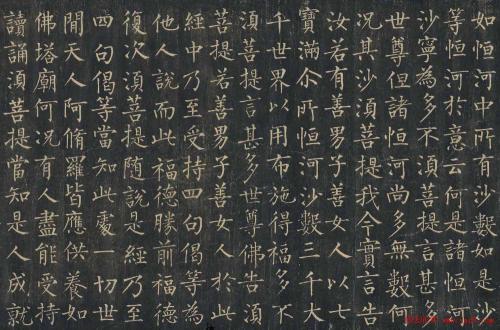 如恒河中所有沙數如是沙
等恒河於意云何是諸恒河
沙寧為多不須菩提言甚多
世尊但諸恒河尚多無數何
況其沙須菩提我今實言告
汝若有善男子善女人以七
寶滿尒所恒河沙數三千大
千世界以用布施得福多不
須菩提言甚多世尊佛告須
菩提若善男子善女人於此
經中乃至受持四句偈等為
他人說而此福德勝前福德
復次須菩提隨說是經乃至
四句偈等當知此處一切世
間天人阿脩羅皆應供養如
佛塔廟何況有人盡能受持
讀誦須菩提當知是人成就